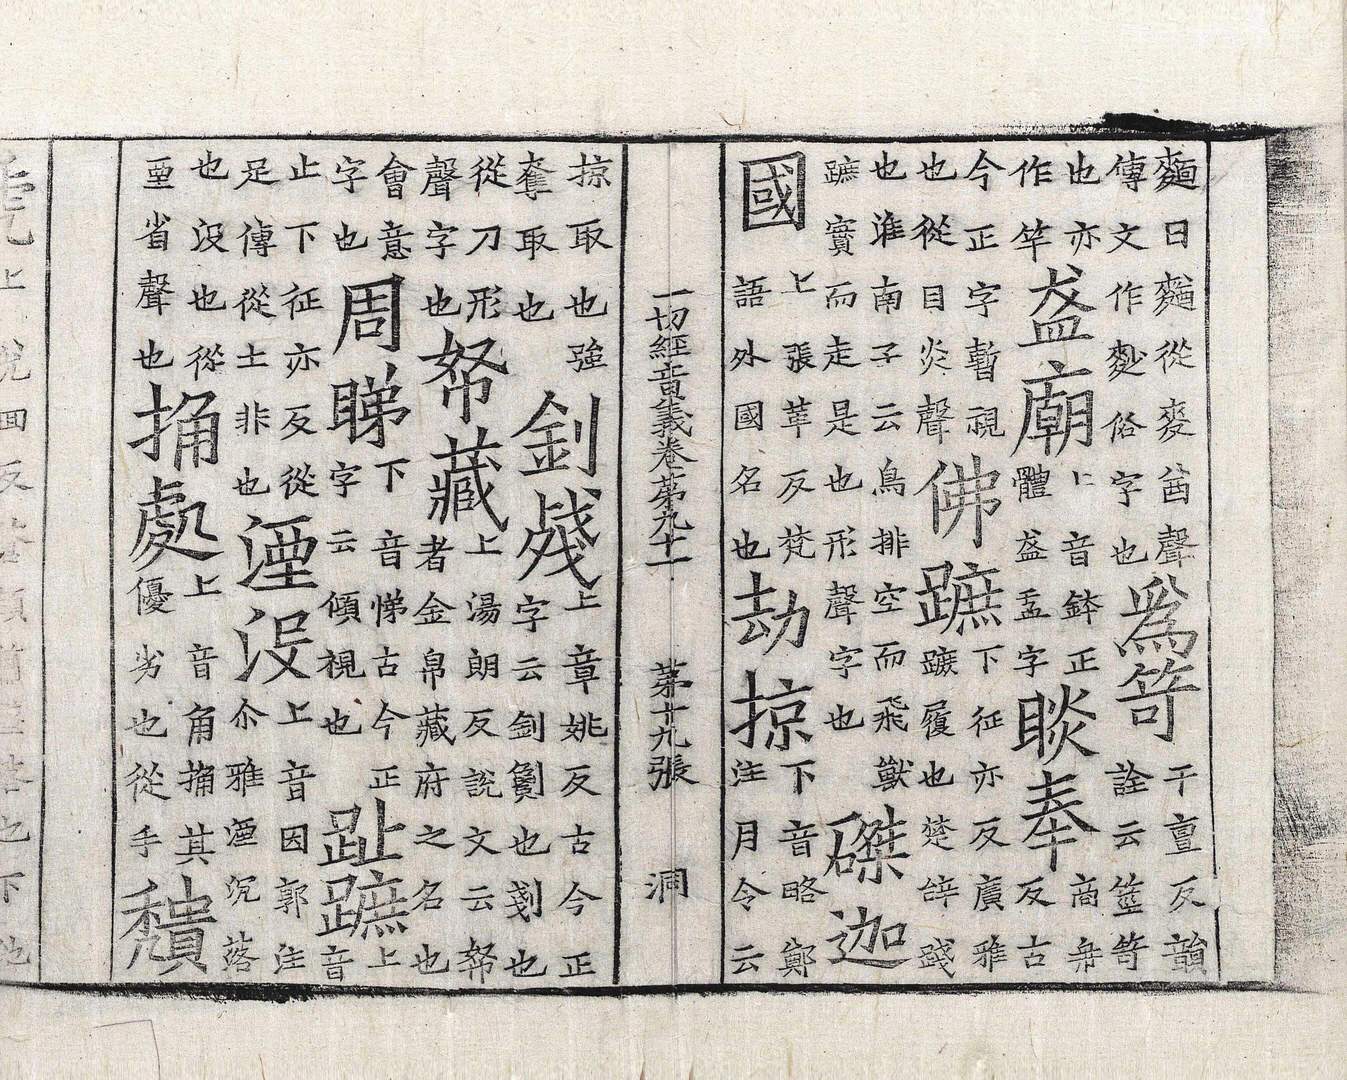 麺曰麺從麥酋聲傳文作麨俗字也為笴干亶反韻詮云筮笴
也亦作竿盋廟上音鉢正體盋盂字睒奉商冉反古
今正字暫視也從目炎聲佛蹠下征亦反廣雅蹠履也楚辞踐
也淮南子云鳥排空而飛獸蹠實而走是也形聲字也磔迦
國上張革反梵語外國名也劫掠下音略鄭注月令云
一切經音義卷第九十一 第十九張 洞
掠取也強奪取也釗殘上章姚反古今正字云釗劖也剗也
從刀形聲字也帑藏上湯朗反說文云帑者金帛藏府之名也
會意字也周睇下音悌古今正字云傾視也趾蹠上音
止下征亦反從足傳從土非也湮沒上音因郭注尒雅湮沉落
也沒也從垔省聲也捔處上音角捔其優劣也從手穨